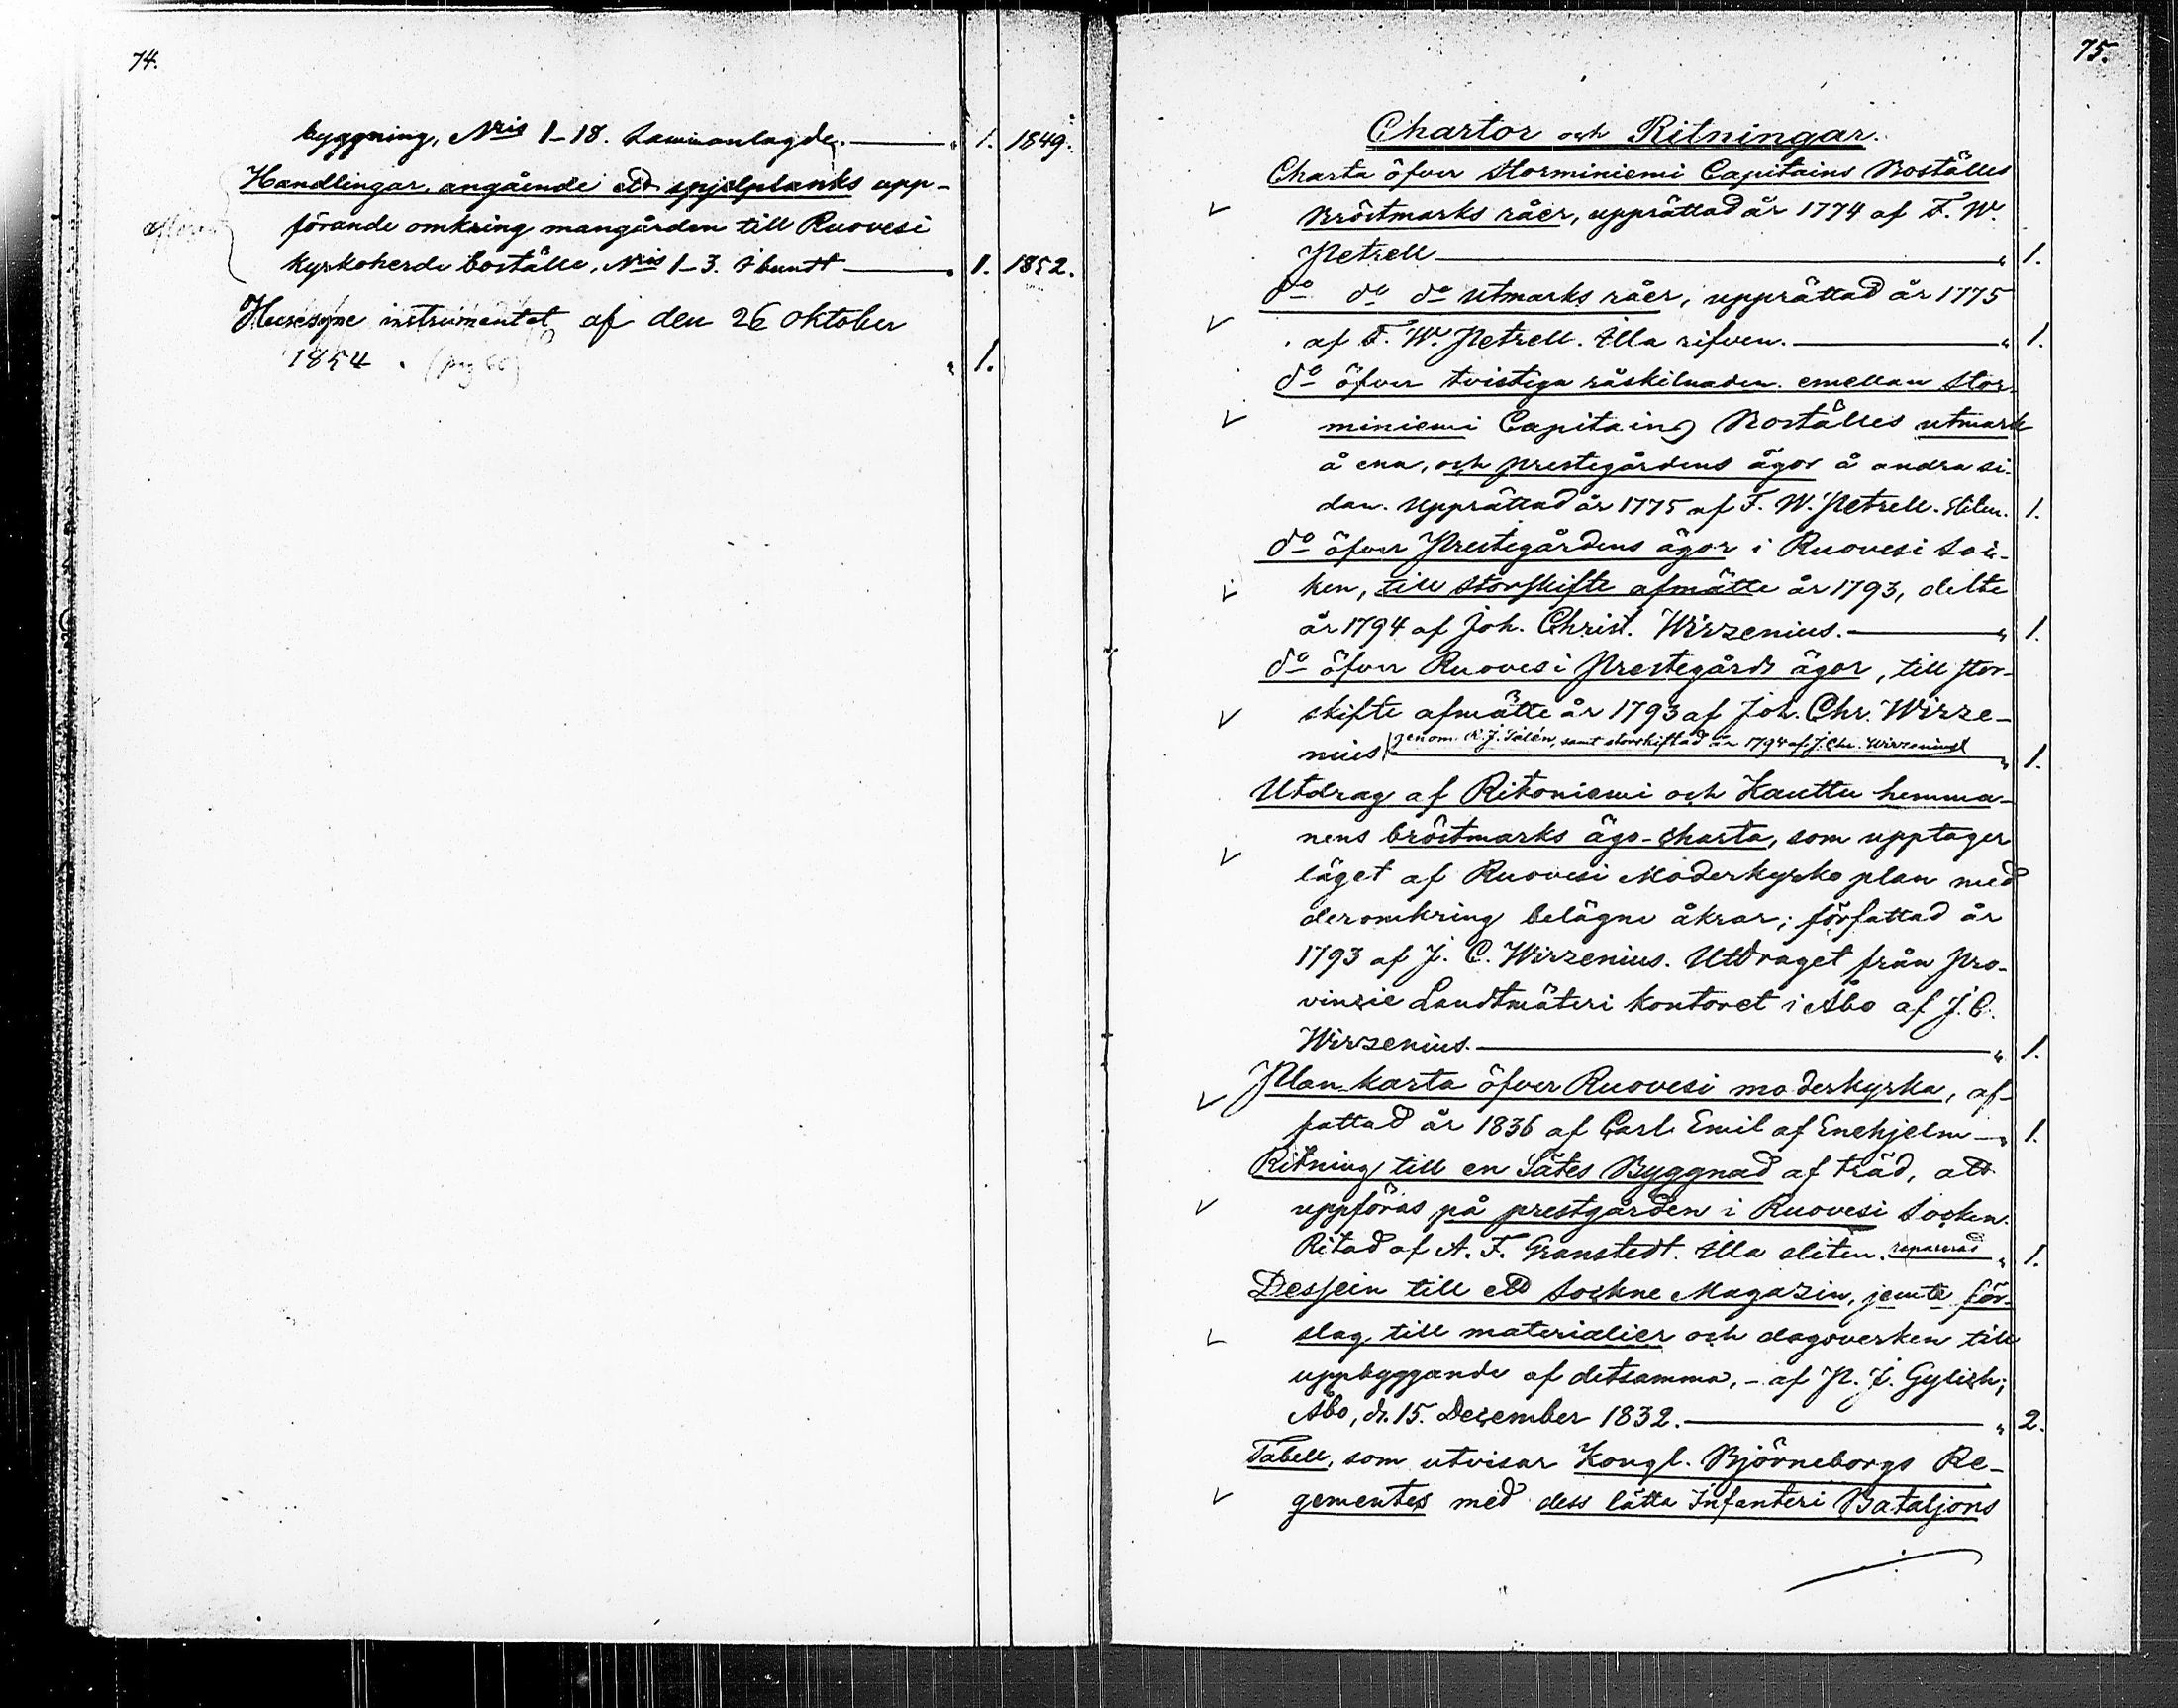 74.
byggning, Nris 1-18. Sammanlagde. — " 1. 1849.
Handlingar, angående ett spjelplanks upp-
förande omkring mangården till Ruovesi
kyrkoherde boställe, Nris 1-3. i bundt — " 1. 1852.
Husesyne instrumentet af den 26 oktober
1854. (pag 60) " 1.
75.
Chartor och Ritningar.
Charta öfver Storminiemi Capitains Boställes
Bröstmarks råer, upprättad år 1774 af F. W.
Petrell — " 1.
do do do utmarks råer, upprättad år 1775
af F. W. Petrell. Illa rifven. — " 1.
do öfver tvistiga råskilnaden emellan Stor-
miniemi Capitains Boställes utmark
å ena, och prestegårdens ägor å andra si-
dan. Upprättad år 1775 af F. W. Petrell. Sliten. 1.
do öfver Prestegårdens ägor i Ruovesi Soc-
ken, till Storskifte afmätte år 1793, delte
år 1794 af Joh. Christ. Wirzenius. — " 1.
do öfver Ruovesi Prestegårds ägor, till stor-
skifte afmätte år 1793 af Joh. Chr. Wirze-
nius (genom K. J. Salén, samt storskiftad år 1794 af J. Chr. Wirzenius) " 1.
Utdrag af Ritoniemi och Kauttu hemma-
nens bröstmarks ägo-charta, som upptager
läget af Ruovesi Moderkyrko plan med
deromkring belägne åkrar; författad år
1793 af J. C. Wirzenius. Utdraget från Pro-
vincie Landtmäteri kontoret i Åbo af J. C.
Wirzenius. — " 1.
Plan-karta öfver Ruovesi moderkyrka, af-
fattad år 1836 af Carl Emil af Enehjelm — " 1.
Ritning till en Sätes Byggnad af träd, att
uppföras på prestgården i Ruovesi Socken.
Ritad af A. F. Granstedt. Illa sliten. reparerad " 1.
Dessein till ett Sockne Magazin, jemte för-
slag till materialier och dagsverken till
uppbyggande af detsamma, - af P. J. Gylich;
Åbo, d. 15. December 1832. — " 2.
Tabell, som utvisar Kongl. Björneborgs Re-
gementes med dess lätta Infanteri Bataljons